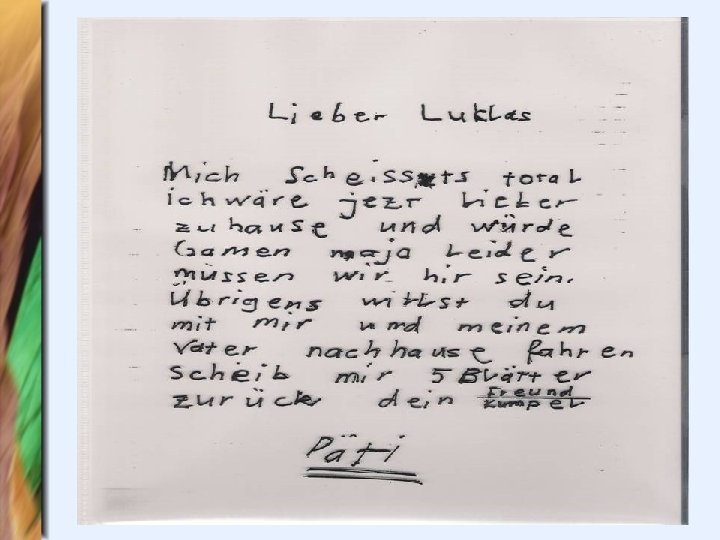 Lieber Luklas
Mich Scheissts total
ich wäre jezt Lieber
zuhause und würde
Gamen naja Leider
müssen wir hir sein.
Übrigens willst du
mit mir und meinem
Vater nachhause fahren
Scheib mir 5 Blätter
zurück dein Freund
Kumpel
Päti